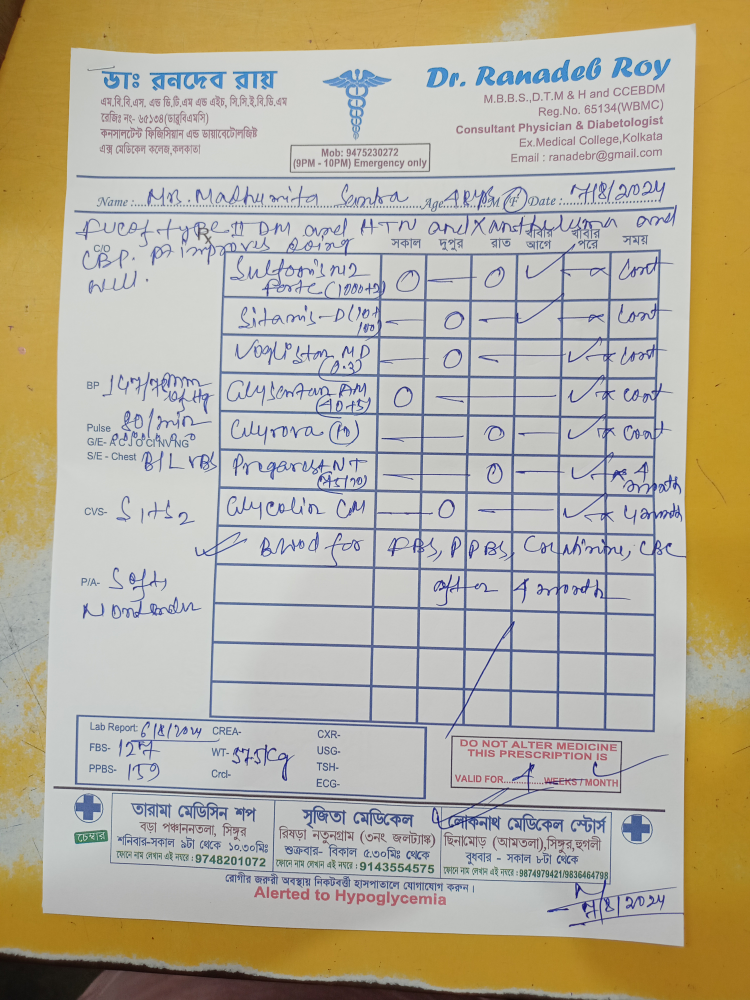 ডাঃ রনদেব রায়
এম.বি.বি.এস. এন্ড ডি.টি.এম এন্ড এইচ, সি.সি.ই.বি.ডি.এম
রেজিঃ নং- ৬৫১৩৪(ডাব্লুবিএমসি)
কনসালটেন্ট ফিজিসিয়ান এন্ড ডায়াবেটোলজিষ্ট
এক্স মেডিকেল কলেজ,কলকাতা
Mob: 9475230272
(9PM - 10PM) Emergency only
Dr. Ranadeb Roy
M.B.B.S.,D.T.M & H and CCEBDM
Reg.No. 65134(WBMC)
Consultant Physician & Diabetologist
Ex.Medical College,Kolkata
Email : ranadebr@gmail.com
Name : Mrs. Madhumita Age M F Date : 7/8/2024
of type II DM and HTN and and
C/O CBP. Pt improves doing
well.
সকাল দুপুর রাত খাবার আগে খাবার পরে সময়
forte (1000+2) O — O ✓ — x cont
Sitamis-D (10+100) — O — ✓ — x cont
MD (0.3) — O — ✓ x cont
BP 147/78mm of Hg
AM (40+5) O — ✓ x cont
Pulse 80/min
(10) — O ✓ x cont
G/E-
S/E - Chest B/L VBS
NT — O ✓ x 4 month
CVS- S1+S2
CM — O — ✓ x 4 month
✓ Blood for FBS, PPBS, Creatinine, CBC
after 4 month
P/A- Soft,
Nontender
Lab Report: 6/8/2024 CREA- CXR-
FBS- 127 WT- 57.5kg USG-
PPBS- 159 Crcl- TSH-
ECG-
DO NOT ALTER MEDICINE
THIS PRESCRIPTION IS
VALID FOR 4 WEEKS / MONTH
চেম্বার
তারামা মেডিসিন শপ
বড়া পঞ্চাননতলা, সিঙ্গুর
শনিবার-সকাল ৯টা থেকে ১০.৩০মিঃ
ফোনে নাম লেখান এই নম্বরে : 9748201072
সৃজিতা মেডিকেল
রিষড়া নতুনগ্রাম (৩নং জলট্যাঙ্ক)
শুক্রবার- বিকাল ৫.৩০মিঃ থেকে
ফোনে নাম লেখান এই নম্বরে : 9143554575
লোকনাথ মেডিকেল স্টোর্স
ছিনামোড় (আমতলা),সিঙ্গুর,হুগলী
বুধবার - সকাল ৮টা থেকে
ফোনে নাম লেখান এই নম্বরে : 9874979421/9836464798
রোগীর জরুরী অবস্থায় নিকটবর্তী হাসপাতালে যোগাযোগ করুন।
Alerted to Hypoglycemia
7/8/2024